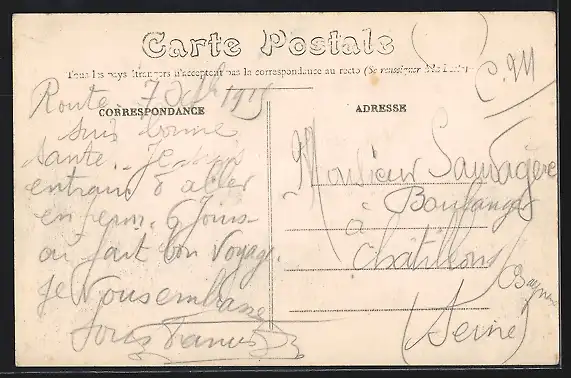 Carte Postale
Tous les pays étrangers n'acceptent pas la correspondance au recto (Se renseigner à la Poste)
C. M
CORRESPONDANCE
ADRESSE
Route. 7 1915
suis bonne
santé. Je suis
entrain d aller
en perm. 6 Jours
ai fait bon Voyage.
Je Vous embrasse
Tous
Monsieur Sauvagère
Boulanger
à
Châtillon
(Seine)